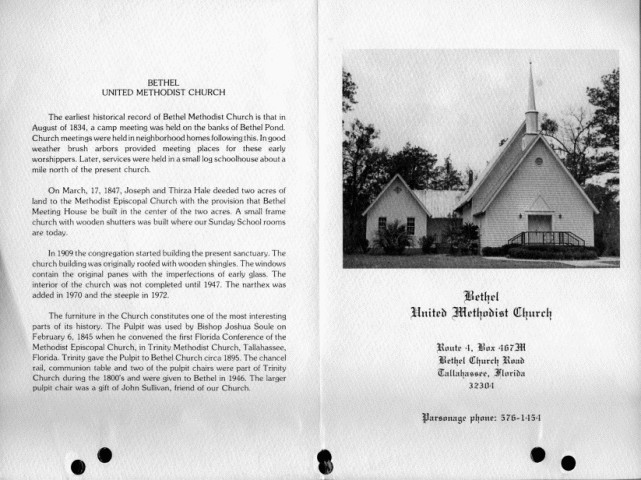 BETHEL
UNITED METHODIST CHURCH
The earliest historical record of Bethel Methodist Church is that in
August of 1834, a camp meeting was held on the banks of Bethel Pond.
Church meetings were held in neighborhood homes following this. In good
weather brush arbors provided meeting places for these early
worshippers. Later, services were held in a small log schoolhouse about a
mile north of the present church.
On March, 17, 1847, Joseph and Thirza Hale deeded two acres of
land to the Methodist Episcopal Church with the provision that Bethel
Meeting House be built in the center of the two acres. A small frame
church with wooden shutters was built where our Sunday School rooms
are today.
In 1909 the congregation started building the present sanctuary. The
church building was originally roofed with wooden shingles. The windows
contain the original panes with the imperfections of early glass. The
interior of the church was not completed until 1947. The narthex was
added in 1970 and the steeple in 1972.
The furniture in the Church constitutes one of the most interesting
parts of its history. The Pulpit was used by Bishop Joshua Soule on
February 6, 1845 when he convened the first Florida Conference of the
Methodist Episcopal Church, in Trinity Methodist Church, Tallahassee,
Florida. Trinity gave the Pulpit to Bethel Church circa 1895. The chancel
rail, communion table and two of the pulpit chairs were part of Trinity
Church during the 1800's and were given to Bethel in 1946. The larger
pulpit chair was a gift of John Sullivan, friend of our Church.
Bethel
United Methodist Church
Route 4, Box 467M
Bethel Church Road
Tallahassee, Florida
32304
Parsonage phone: 576-1454